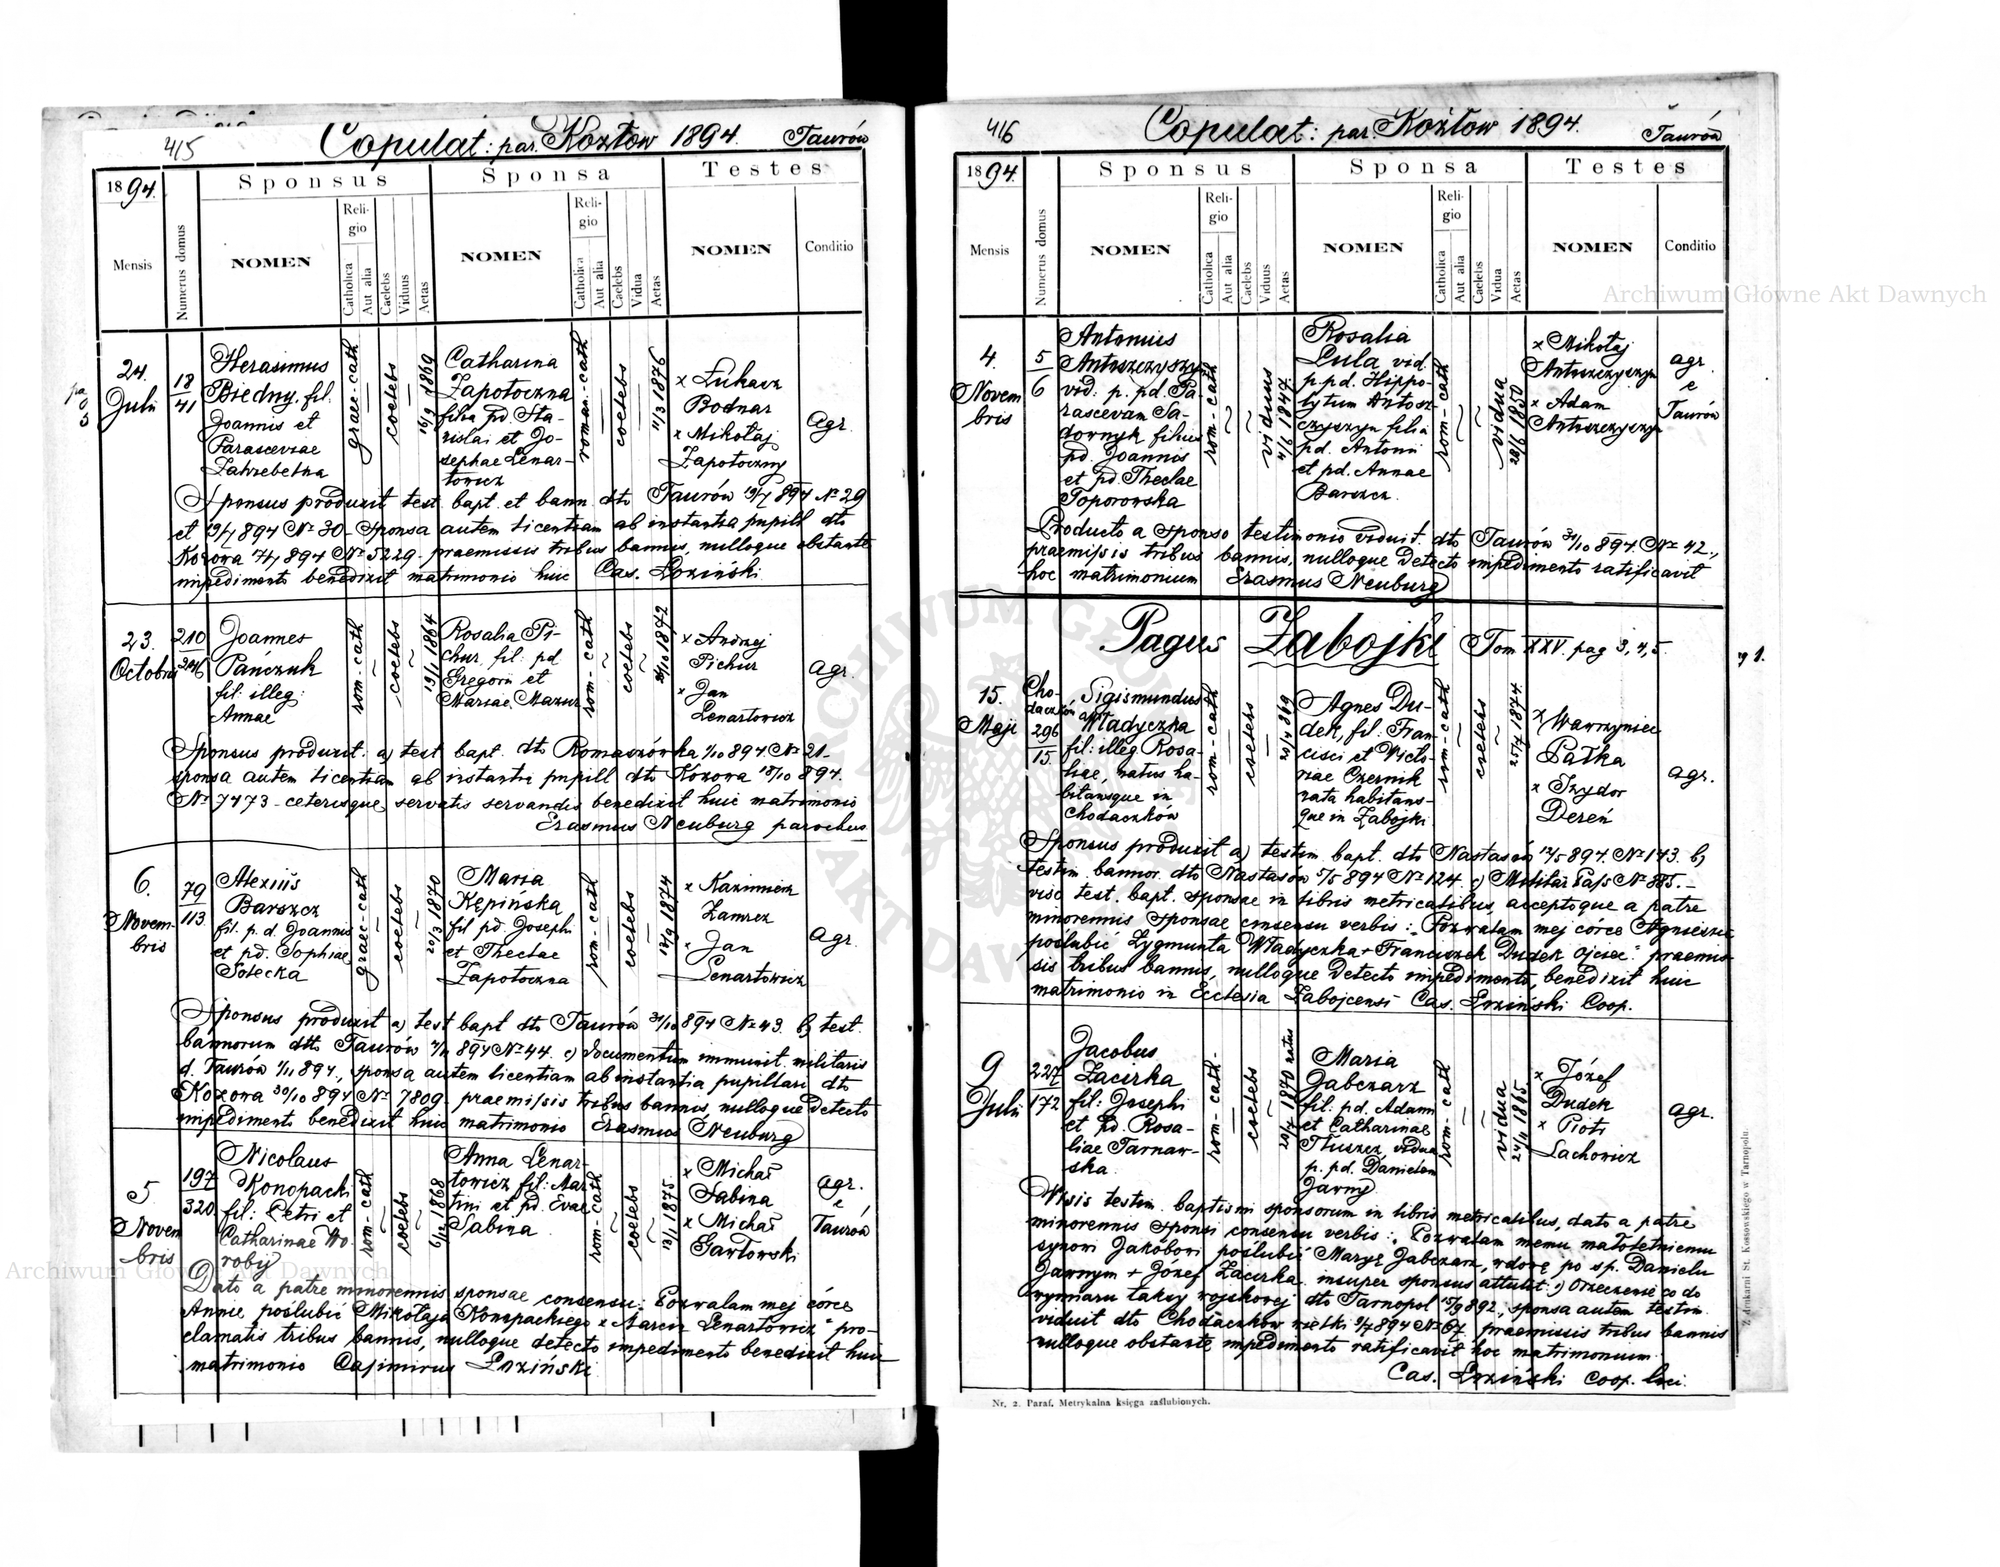 415
Copulat: par. Kozłow 1894. Taurów
1894.
Mensis
Numerus domus
Sponsus
NOMEN
Religio
Catholica
Aut alia
Caelebs
Viduus
Aetas
Sponsa
NOMEN
Religio
Catholica
Aut alia
Caelebs
Vidua
Aetas
Testes
NOMEN
Conditio
24.
Julii
18
41
Herasimus
Biedny. fil.
Joannis et
Parasceviae
Zahrebelna
graec-cath
coelebs
16/9 1869
Catharina
Zapotoczna
filia pd. Sta-
nislai et Jo-
sephae Lenar-
towicz
roman-cath
coelebs
11/3 1876
x Łukasz
Bodnar
x Mikołaj
Zapotoczny
agr.
Sponsus produxit test. bapt. et bann. dto Taurów 19/7 894 No 29
et 19/7 894 No 30 - Sponsa autem licentiam ab instantia pupill dto
Kozowa 7/7 894 No 5229 - praemissis tribus bannis, nulloque obstante
impedimento benedixit matrimonio huic Cas. Łoziński
23.
Octobris
210
Joannes
Pańczuk
fil. illeg.
Annae
rom-cath
coelebs
19/1 1864
Rosalia Pi-
chur, fil: pd.
Gregorii et
Mariae Mazur
rom-cath
coelebs
1872
x Andrzej
Pichur
x Jan
Lenartowicz
agr.
Sponsus produxit: a) test bapt. dto Romaszówka 1/10 894 No 21-
sponsa autem licentiam ab instantii pupill dto Kozowa 18/10 894.
No 7473 - ceterisque, servatis servandis benedixit huic matrimonio
Erasmus Neuburg parochus
6.
Novem-
bris
79
113
Alexius
Barszcz
fil. p. d. Joannis
et pd. Sophiae
Sołecka
graec-cath
coelebs
20/3 1870
Maria
Kępińska
fil pd. Josephi
et Theclae
Zapotoczna
rom-cath
coelebs
1874
x Kazimierz
Zamrez
x Jan
Lenartowicz
agr.
Sponsus produxit a) test bapt dto Taurów 31/10 894 No 43. b) test.
bannorum dtto Taurów 894 No 44. c) documentum immunit. militaris
d. Taurów 1/11 894., sponsa autem licentiam ab instantia pupillari dto
Kozowa 30/10 894 No 7809. praemissis tribus bannis, nulloque detecto
impedimento benedixit huic matrimonio Erasmus Neuburg
5
Novem
bris
197
320
Nicolaus
Konopacki
fil: Petri et
Catharinae Wo-
robij
rom-cath
coelebs
6/12 1868
Anna Lenar-
towicz fil: Mar-
tini et pd. Evae
Sabina
rom-cath
coelebs
13/1 1875
x Michał
Sabina
x Michał
Gawłowski
agr.
e
Taurów
Dato a patre minorennis sponsae consensu: Pozwalam mej córce
Annie poślubić Mikołaja Konopackiego x Marcin Lenartowicz" pro-
clamatis tribus bannis, nulloque detecto impedimento benedixit huic
matrimonio Casimirus Łoziński
416
Copulat: par. Kozłow 1894. Taurów
1894.
Mensis
Numerus domus
Sponsus
NOMEN
Religio
Catholica
Aut alia
Caelebs
Viduus
Aetas
Sponsa
NOMEN
Religio
Catholica
Aut alia
Caelebs
Vidua
Aetas
Testes
NOMEN
Conditio
4.
Novem
bris
5
6
Antonius
Antoszczyszyn
vid. p. pd. Pa-
rascevam Sa-
downyk filius
pd. Joannis
et pd. Theclae
Toporowska
rom-cath
viduus
4/6 1847.
Rosalia
Lula vid.
p. pd. Hippo-
lytum Antosz-
czyszyn filia
pd. Antonii
et pd. Annae
Barszcz.
rom-cath
vidua
28/6 1850
x Mikołaj
Antoszczyszyn
x Adam
Antoszczyszyn
agr.
e
Taurów
Producto a sponso testimonio viduit. dto Taurów 31/10 894. No 42.,
praemissis tribus bannis, nulloque detecto impedimento ratificavit
hoc matrimonium Erasmus Neuburg
Pagus Zabojki Tom XXV. pag 3, 4, 5.
15.
Maji
Cho-
daczków
296
15.
Sigismundus
Władyczka
fil: illeg Rosa-
liae, natus ha-
bitansque in
Chodaczków
rom-cath
coelebs
20/4 869
Agnes Du-
dek, fil. Fran-
cisci et Victo-
riae Czernik
nata habitans-
que in Zabojki
rom-cath
coelebs
25/7 1874.
x Wawrzyniec
Pałka
x Izydor
Dereń
agr.
Sponsus produxit a) testim bapt. dto Nastasów 12/5 894. No 143. b)
testim. bannor. dto Nastasów 5/5 894 No 124 c) Militär Paß No 885. -
viso test. bapt. sponsae in libris metricalibus, acceptoque a patre
minorennis sponsae consensu verbis: Pozwalam mej córce Agnieszce
poślubić Zygmunta Władyczka + Franciszek Dudek ojciec" praemis-
sis tribus bannis, nulloque detecto impedimento, benedixit huic
matrimonio in Ecclesia Zabojcensi Cas. Łoziński Coop.
9
Julii
227
172
Jacobus
Zacirka
fil: Josephi
et pd. Rosa-
liae Tarnaw-
ska
rom-cath-
coelebs
20/7 1870 natus
Maria
Gabczarz
fil. pd. Adami
et Catharinae
Tłuszcz, vidua
p. pd. Danielem
Jarny
rom-cath
vidua
24/11 1865.
x Józef
Dudek
x Piotr
Lachowicz
agr.
Visis testim. baptismi sponsorum in libris metricalibus, dato a patre
minorennis sponsi consensu verbis: Pozwalam memu małoletniemu
synowi Jakóbowi poślubić Maryę Gabczarz, wdowę po śp. Danielu
Jarnym + Józef Zacirka. insuper sponsus attulit: Orzeczenie co do
wymiaru taksy wojskowej dto Tarnopol 15/9 892., sponsa autem testim.
viduit dto Chodaczków wielki 9/7 894 No 67. praemissis tribus bannis
nulloque obstante impedimento ratificavit hoc matrimonium.
Cas. Łoziński Coop. loci.
Nr. 2. Paraf. Metrykalna księga zaślubionych.
Z drukarni St. Kossowskiego w Tarnopolu.
Archiwum Główne Akt Dawnych
Archiwum Główne Akt Dawnych
ARCHIWUM GŁÓWNE AKT DAWNYCH